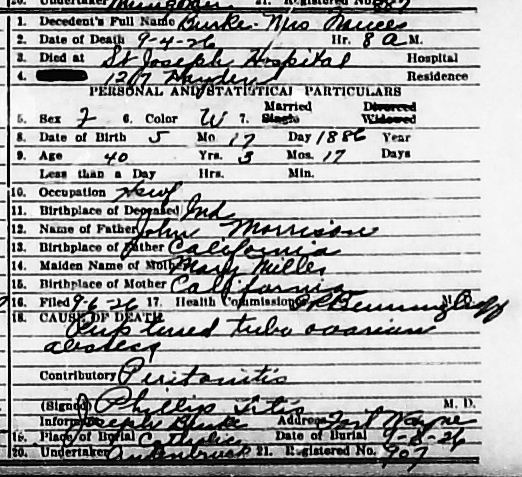 20. Undertaker 21. Registered No. 887
1. Decedent's Full Name Burke- Mrs Frances
2. Date of Death 9-4-26 Hr. 8 A M.
3. Died at St Joseph Hospital Hospital
4. 1217 Hayden Residence
PERSONAL AND STATISTICAL PARTICULARS
5. Sex F 6. Color W 7. Married Single Divorced Widowed
8. Date of Birth 5 Mo. 17 Day 1886 Year
9. Age 40 Yrs. 3 Mos. 17 Days
Less than a Day Hrs. Min.
10. Occupation Hswf
11. Birthplace of Deceased Ind
12. Name of Father John Morrison
13. Birthplace of Father California
14. Maiden Name of Mother Mary Miller
15. Birthplace of Mother California
16. Filed 9-6-26 17. Health Commissioner
18. CAUSE OF DEATH
Ruptured tubo ovarian
abscess
Contributory Peritonitis
(Signed) Phillip Titus M. D.
Informant Joseph Burke Address Fort Wayne
19. Place of Burial Catholic Date of Burial 9-8-26
20. Undertaker 21. Registered No. 907